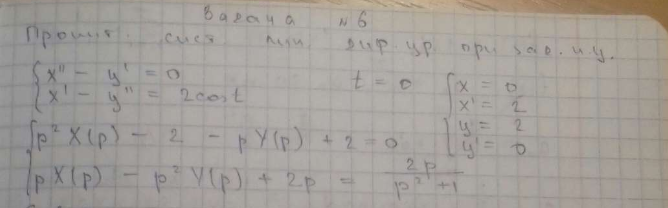 Задача №6
Проинт. сист лин диф. ур при зад. н.у.
x'' - y' = 0
x' - y'' = 2cost
t = 0
x = 0
x' = 2
y = 2
y' = 0
p² X(p) - 2 - pY(p) + 2 = 0
pX(p) - p² Y(p) + 2p = 2p / (p² + 1)